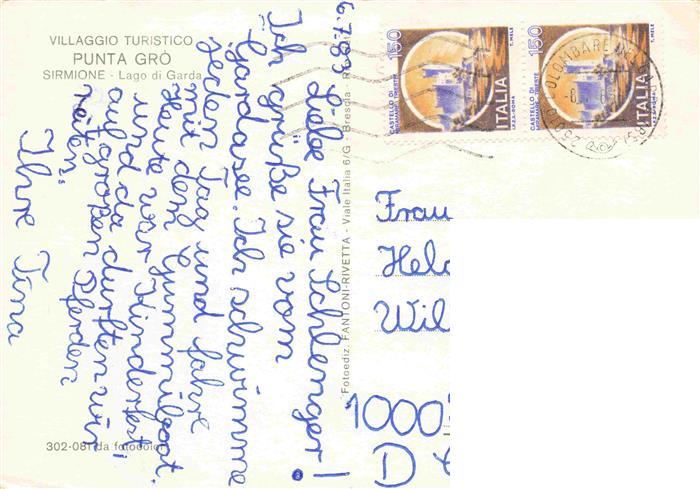 VILLAGGIO TURISTICO
PUNTA GRÒ
SIRMIONE - Lago di Garda
6.7.83
Liebe Frau Schlenger!
Ich grüße sie vom
Gardasee. Ich schwimme
jeden Tag und fahre
mit dem Gummiboot.
Heute war Kinderfest
und da durften wir
auf großen Pferden
reiten.
Ihre Tina
302-081 da fotocolor
Fotoediz. FANTONI-RIVETTA - Viale Italia 6/G - Brescia
150
CASTELLO DI
MIRAMARE-TRIESTE
I.P.Z.S.-ROMA
ITALIA
T. MELE
150
CASTELLO DI
MIRAMARE-TRIESTE
ITALIA
T. MELE
25010 COLOMBARE
Frau
Hel
Wil
1000
D